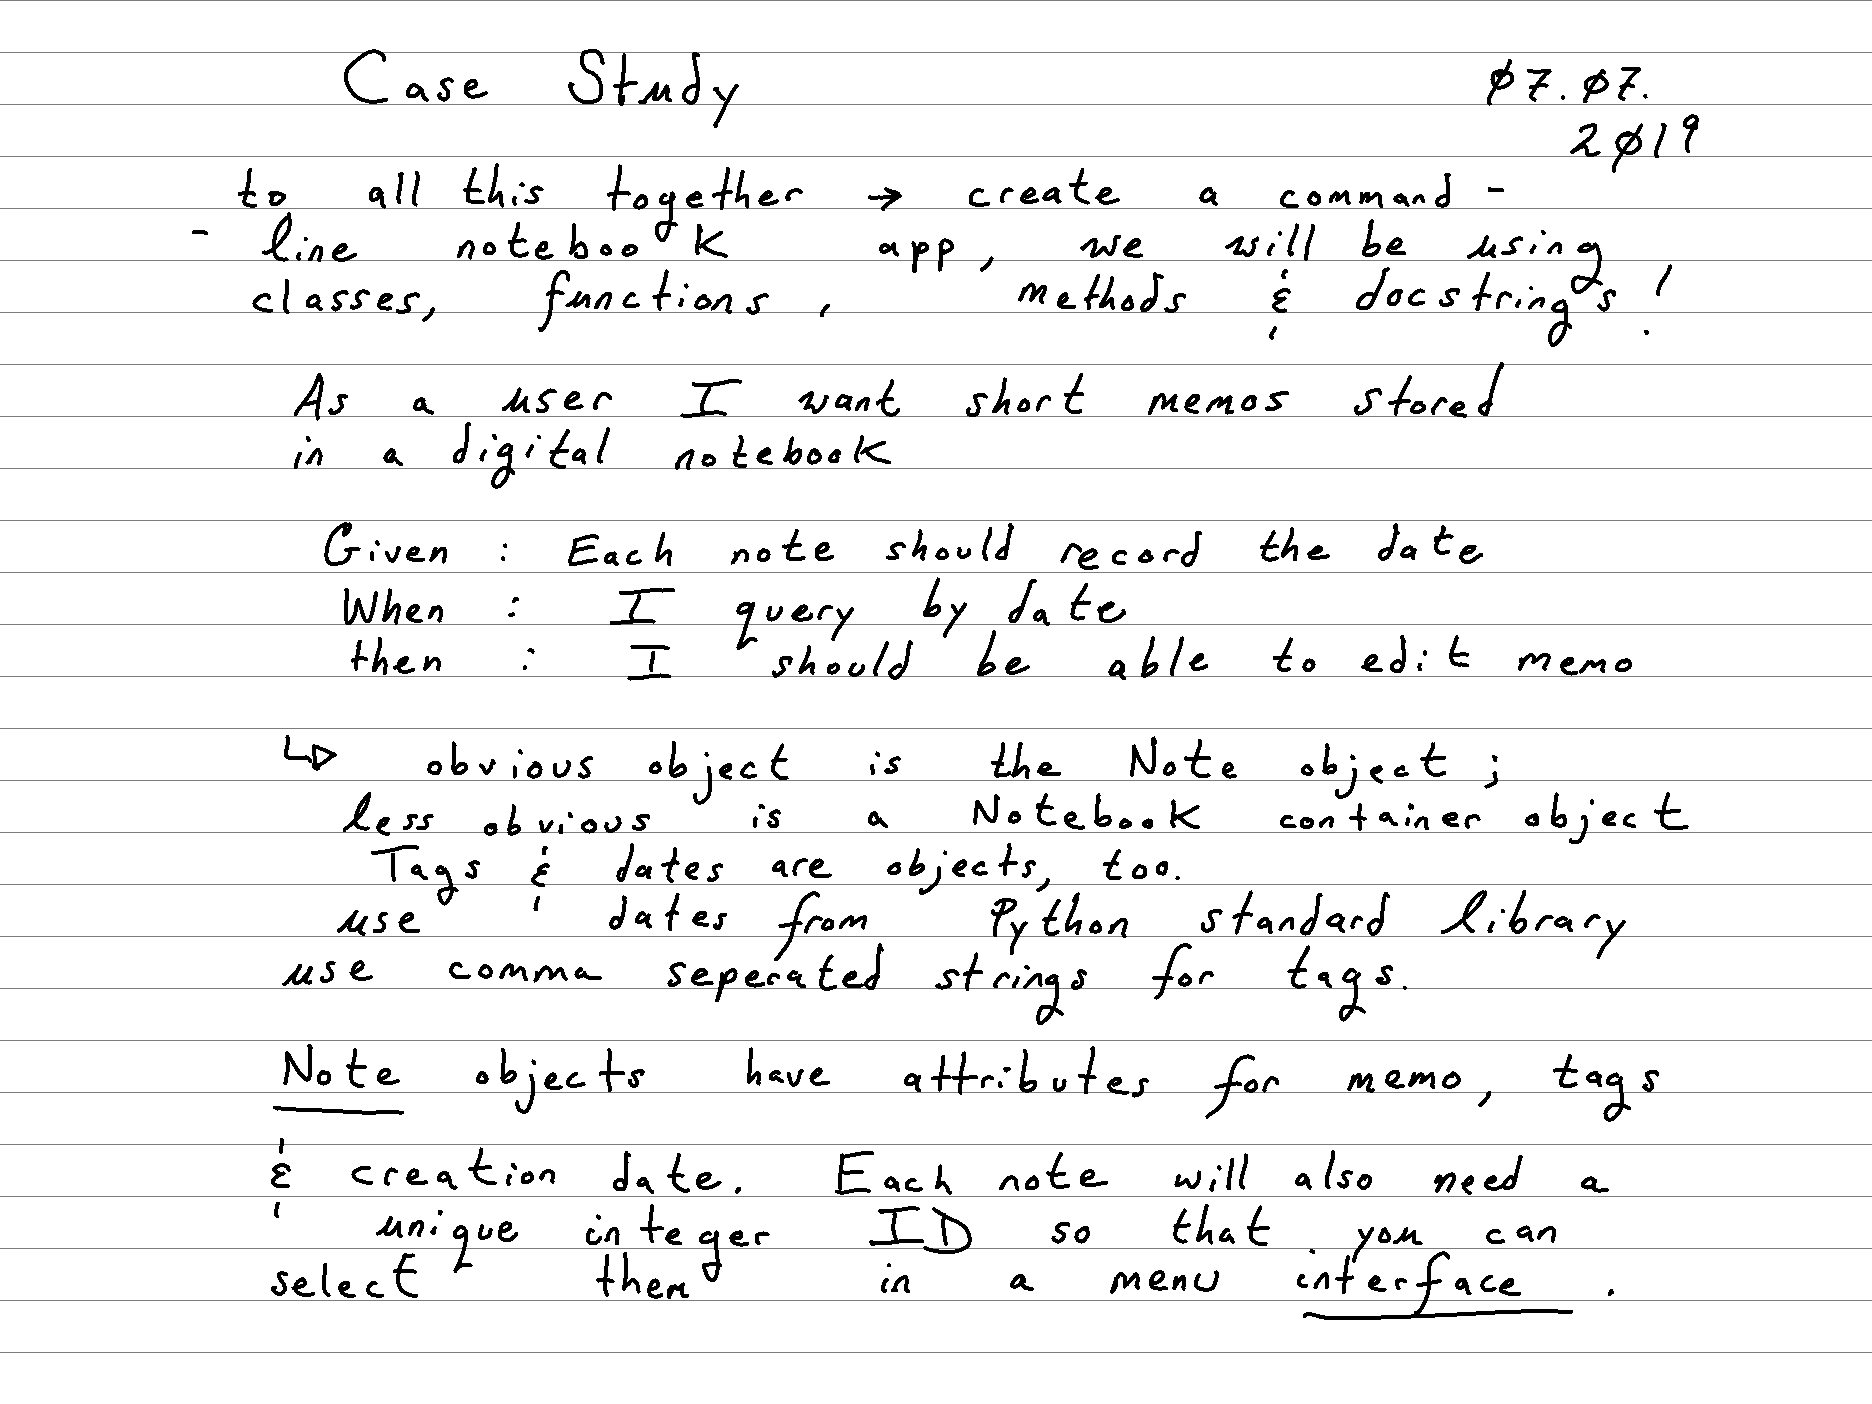 Case Study
07.07.
2019
to all this together → create a command -
- line notebook app, we will be using
classes, functions, methods & docstrings!
As a user I want short memos stored
in a digital notebook
Given : Each note should record the date
When : I query by date
then : I should be able to edit memo
↳ obvious object is the Note object ;
less obvious is a Notebook container object
Tags & dates are objects, too.
use dates from Python standard library
use comma seperated strings for tags.
Note objects have attributes for memo, tags
& creation date. Each note will also need a
unique integer ID so that you can
select them in a menu interface .